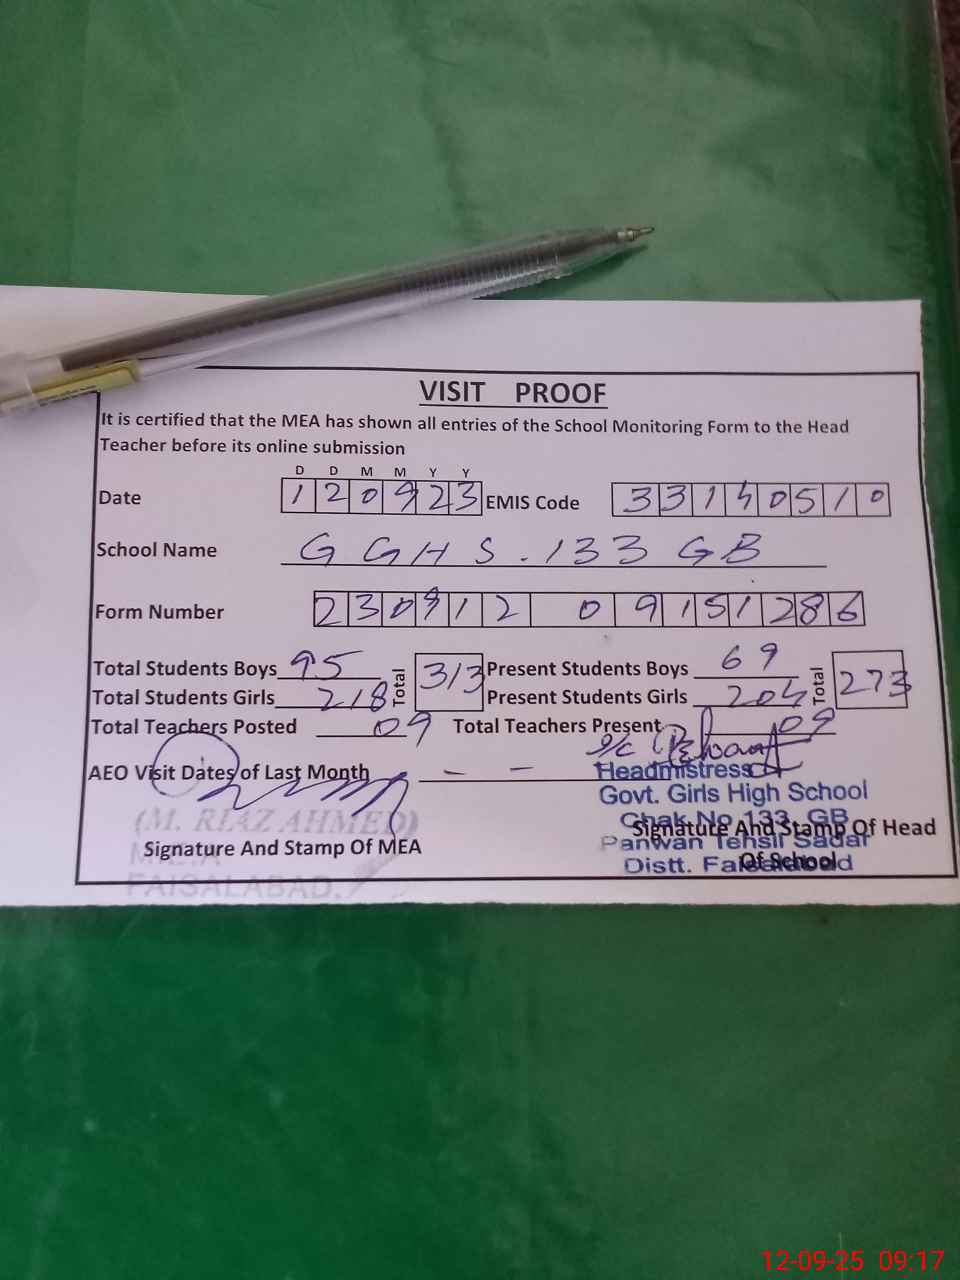 VISIT PROOF
It is certified that the MEA has shown all entries of the School Monitoring Form to the Head
Teacher before its online submission
D D M M Y Y
Date 120923 EMIS Code 33140510
School Name GGHS.133 GB
Form Number 230912 09151286
Total Students Boys 95 Total 313 Present Students Boys 69 Total 273
Total Students Girls 218 Present Students Girls 204
Total Teachers Posted 09 Total Teachers Present 09
AEO Visit Dates of Last Month - -
(M. RIAZ AHMED)
Signature And Stamp Of MEA
FAISALABAD.
Headmistress
Govt. Girls High School
Chak No 133, GB
Signature And Stamp Of Head
Panwan Tehsil Sadar
Of School
Distt. Faisalabad
12-09-25 09:17